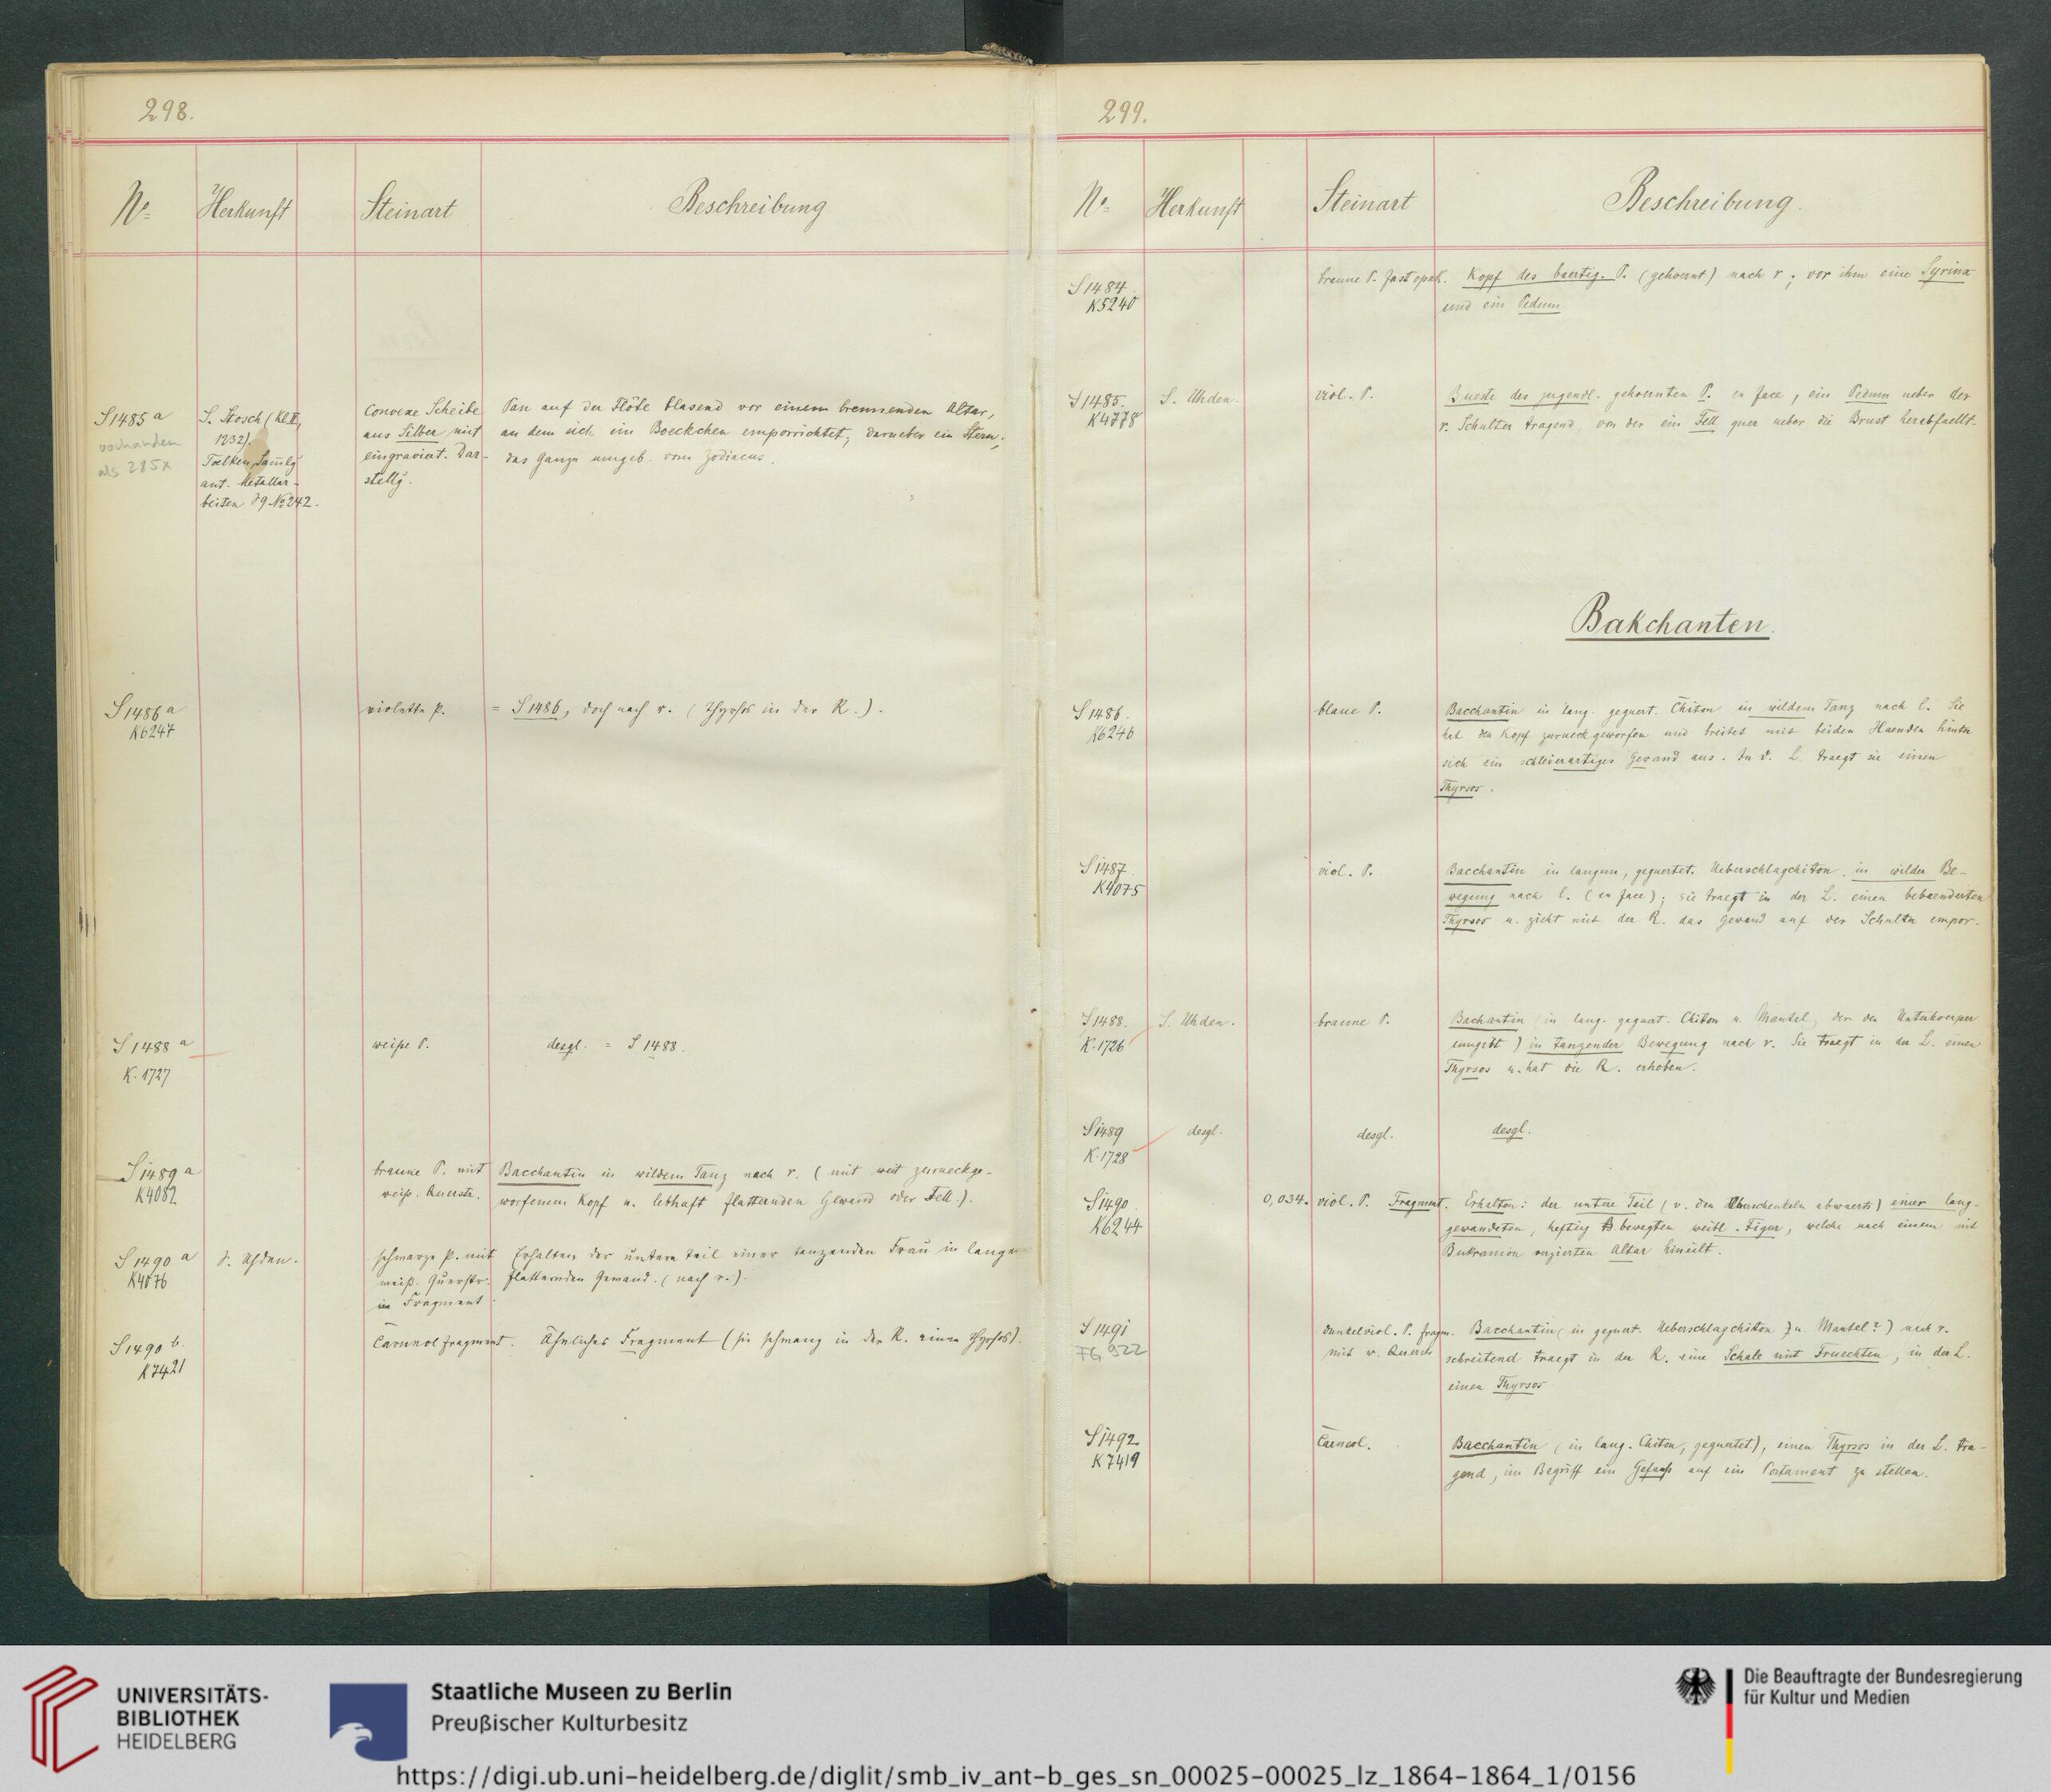 298.
No Herkunft Steinart Beschreibung
S1485a S. Stosch (Kl II, Convexe Scheibe Pan auf der Flöte blasend vor einem brennenden Altar,
vorhanden 1232). aus Silber mit an dem sich ein Boeckchen emporrichtet; darueber ein Stern;
als 285x Toelken, Samlg eingraviert. Dar- das Ganze umgeb. vom Zodiacus.
ant. Metallar- stellg.
beiten S9 No 242.
S1486a violette P. = S1486, doch nach r. (Thyrsos in der R.).
K6247
S1488a weiße P. desgl. = S1488.
K.1727
S1489a braune P. mit Bacchantin in wildem Tanz nach r. (mit weit zurueckge-
K4082 weiß. Querstr. worfenem Kopf u. lebhaft flatternden Gewand oder Fell.).
S1490a S. Uhden. schwarze P. mit Erhalten der untere Teil einer tanzenden Frau in langem
K4076 weiß. Querstr. flatternden Gewand. (nach r.).
im Fragment
S1490b. Carneol fragment. Ähnliches Fragment (sie schwang in der R. einen Thyrsos).
K7421
299.
No Herkunft Steinart Beschreibung.
S1484 braune P. fast opak. Kopf des baertig. P. (gehoernt) nach r; vor ihm eine Syrinx
K5240 und ein Pedum.
S1485. S. Uhden. viol. P. Bueste des jugendl. gehoernten P. en face, ein Pedum ueber der
K4778 r. Schulter tragend, von der ein Fell quer ueber die Brust herabfaellt.
Bakchanten.
S1486. blaue P. Bacchantin in lang. geguert. Chiton in wildem Tanz nach l. Sie
K6246 hat den Kopf zurueckgeworfen und breitet mit beiden Haenden hinter
sich ein schleierartiges Gewand aus. In d. L. traegt sie einen
Thyrsos.
S1487 viol. P. Bacchantin in langem, geguertet. Ueberschlagchiton in wilder Be-
K4075 wegung nach l. (en face); sie traegt in der L. einen bebaenderten
Thyrsos u. zieht mit der R. das Gewand auf der Schulter empor.
S1488. S. Uhden. braune P. Bachantin (in lang. geguert. Chiton u. Mantel, der den Unterkoerper
K.1726 umgibt) in tanzender Bewegung nach r. Sie traegt in der L. einen
Thyrsos u. hat die R. erhoben.
S1489 desgl. desgl. desgl.
K.1728
S1490 0,034. viol. P. Fragment. Erhalten: der untere Teil (v. den Oberschenkeln abwaerts) einer lang-
K6244 gewandeten, heftig bewegten weibl. Figur, welche nach einem mit
Bukranion verzierten Altar hineilt.
S1491 dunkelviol. P. fragm. Bacchantin (in geguert. Ueberschlagchiton u. Mantel?) nach r.
FG 922 mit w. Querstr. schreitend traegt in der R. eine Schale mit Fruechten, in der L.
einen Thyrsos
S1492 Carneol. Bacchantin (in lang. Chiton, geguertet), einen Thyrsos in der L. tra-
K7419 gend, im Begriff ein Gefaess auf ein Postament zu stellen.
UNIVERSITÄTS-
BIBLIOTHEK
HEIDELBERG
Staatliche Museen zu Berlin
Preußischer Kulturbesitz
Die Beauftragte der Bundesregierung
für Kultur und Medien
https://digi.ub.uni-heidelberg.de/diglit/smb_iv_ant-b_ges_sn_00025-00025_lz_1864-1864_1/0156